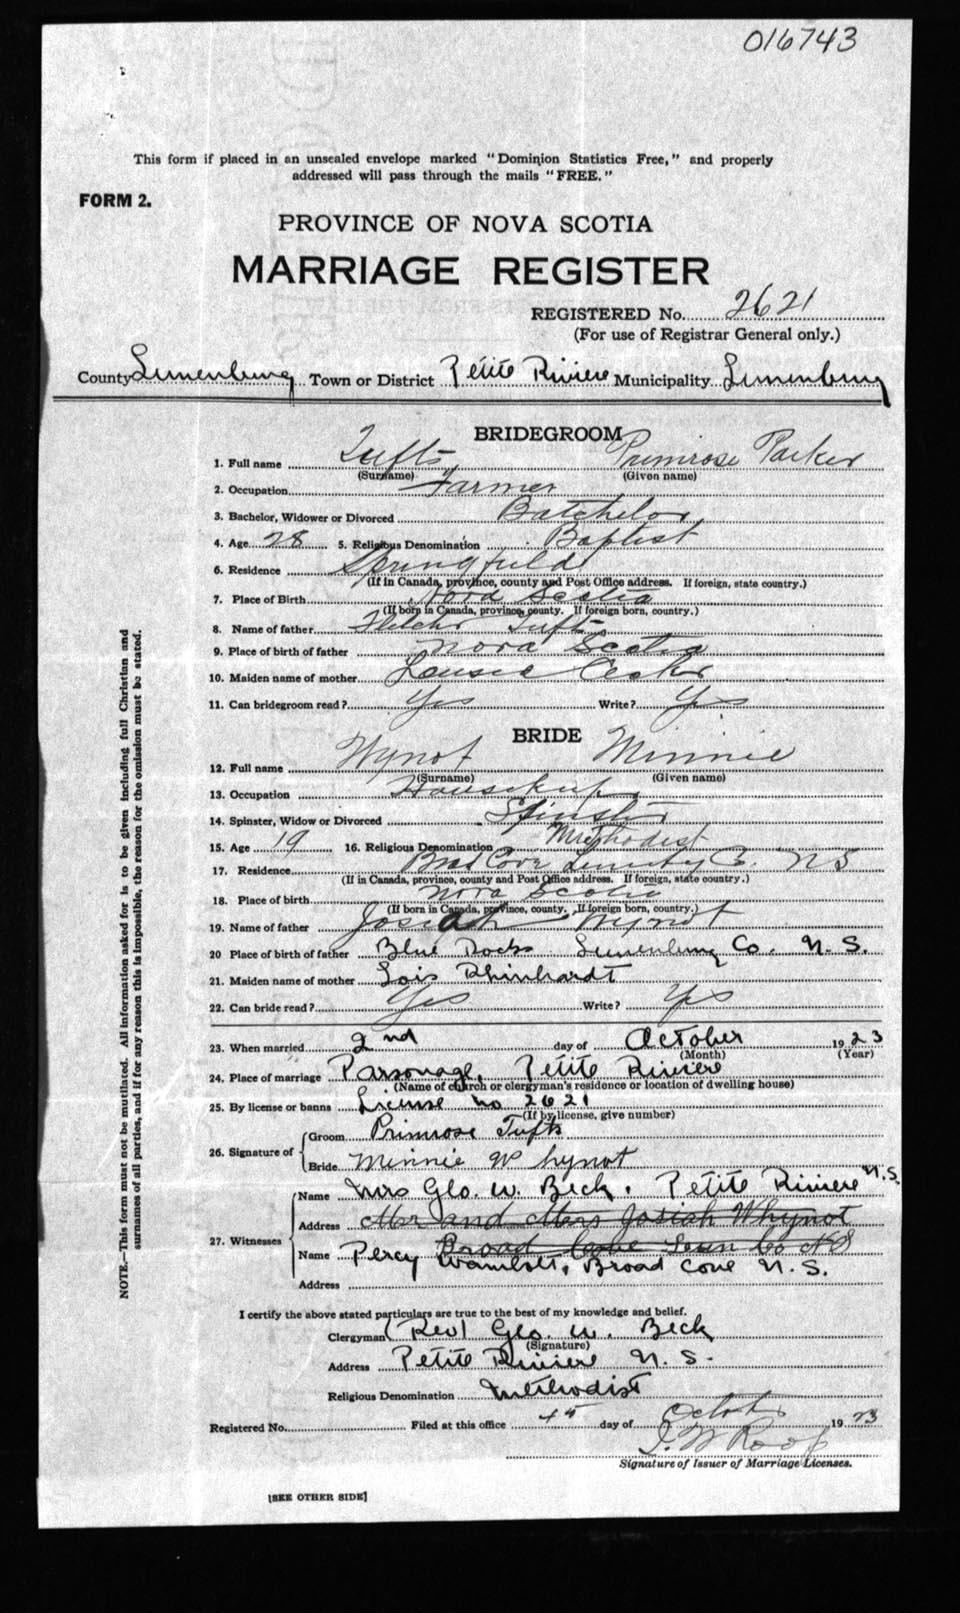 016743
This form if placed in an unsealed envelope marked "Dominion Statistics Free," and properly
addressed will pass through the mails "FREE."
FORM 2.
PROVINCE OF NOVA SCOTIA
MARRIAGE REGISTER
REGISTERED No. 2621
(For use of Registrar General only.)
County Lunenburg Town or District Petite Riviere Municipality Lunenburg
BRIDEGROOM
1. Full name Tufts, Primrose Parker
(Surname) (Given name)
2. Occupation Farmer
3. Bachelor, Widower or Divorced Batchelor
4. Age 28 5. Religious Denomination Baptist
6. Residence Springfield
(If in Canada, province, county and Post Office address. If foreign, state country.)
7. Place of Birth Nova Scotia
(If born in Canada, province, county. If foreign born, country.)
8. Name of father Tufts
9. Place of birth of father Nova Scotia
10. Maiden name of mother
11. Can bridegroom read? Yes Write? Yes
BRIDE
12. Full name Wynot Minnie
(Surname) (Given name)
13. Occupation
14. Spinster, Widow or Divorced Spinster
15. Age 19 16. Religious Denomination Methodist
17. Residence Co. N S
(If in Canada, province, county and Post Office address. If foreign, state country.)
18. Place of birth Nova Scotia
(If born in Canada, province, county. If foreign born, country.)
19. Name of father Josiah Wynot
20 Place of birth of father Blue Rocks Lunenburg Co. N. S.
21. Maiden name of mother Lois Rhinhardt
22. Can bride read? Yes Write? Yes
23. When married 2nd day of October 1923
(Month) (Year)
24. Place of marriage Parsonage, Petite Riviere
(Name of church or clergyman's residence or location of dwelling house)
25. By license or banns License no 2621
(If by license, give number)
26. Signature of
Groom Primrose Tufts
Bride Minnie Whynot
27. Witnesses
Name Mrs Geo. W. Beck, Petite Riviere N.S.
Address Mr and Mrs Josiah Whynot
Broad Cove Lun Co N S
Name Percy Wambolt, Broad Cove N. S.
Address
I certify the above stated particulars are true to the best of my knowledge and belief.
Clergyman (Rev) Geo. W. Beck
(Signature)
Address Petite Riviere N. S.
Religious Denomination Methodist
Registered No. Filed at this office day of October 1923
Signature of Issuer of Marriage Licenses.
[SEE OTHER SIDE]
NOTE.—This form must not be mutilated. All information asked for is to be given including full Christian and
surnames of all parties, and if for any reason this is impossible, the reason for the omission must be stated.